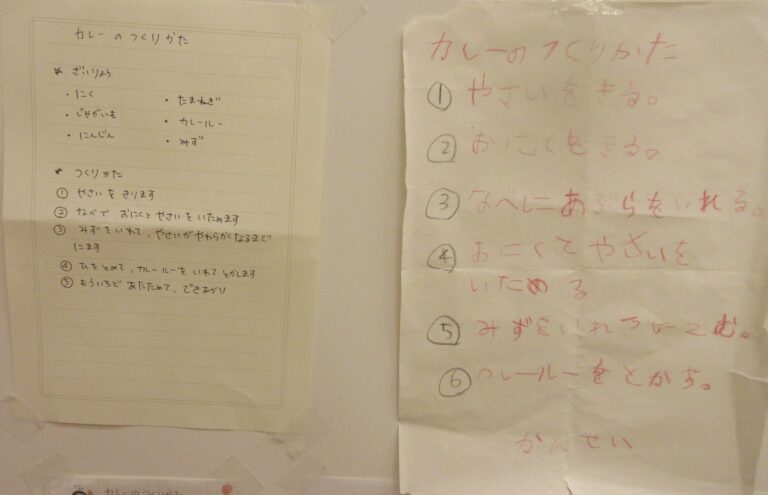 カレーのつくりかた
* ざいりょう
・にく
・じゃがいも
・にんじん
・たまねぎ
・カレールー
・みず
* つくりかた
① やさいをきります
② なべで おにくと やさいを いためます
③ みずをいれて、やさいがやわらかくなるまで
にます
④ ひをとめて、カレールーをいれてとかします
⑤ もういちど あたためて、できあがり
カレーのつくりかた
① やさいをきる。
② おにくをきる。
③ なべにあぶらをいれる。
④ おにくとやさいを
いためる
⑤ みずをいれ
⑥ カレールーをとかす。
かんせい
カレーのつくりかた